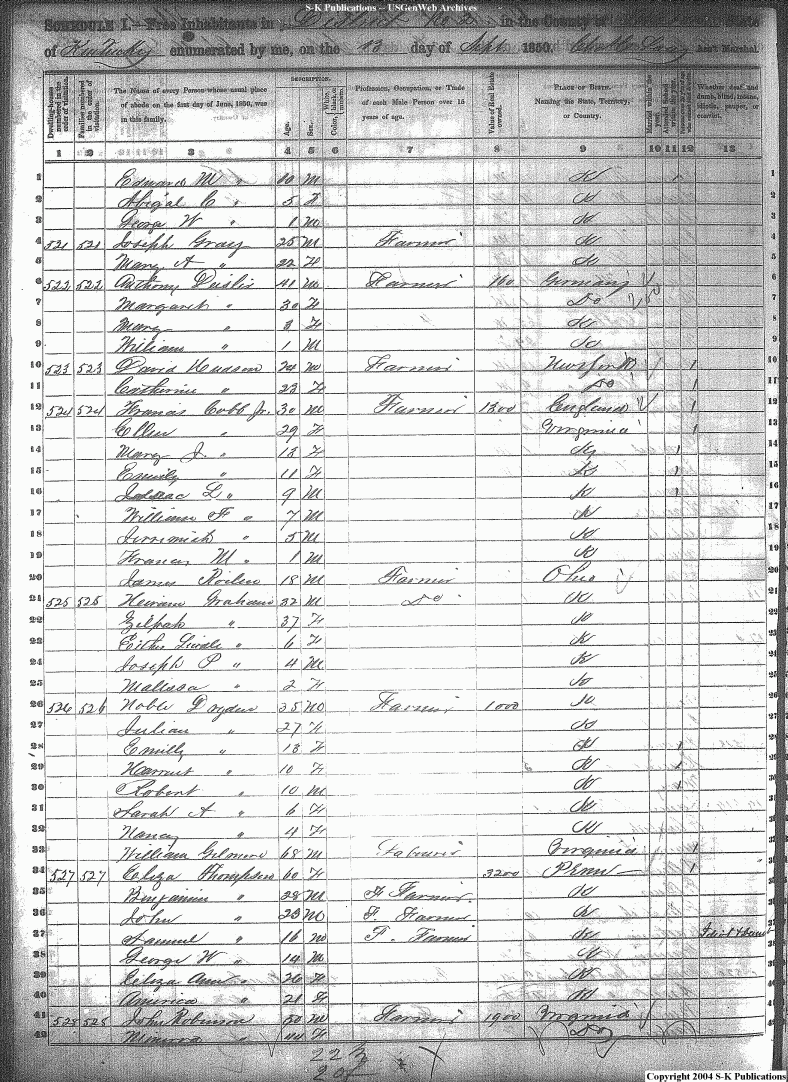 S-K Publications – USGenWeb Archives
SCHEDULE I.—Free Inhabitants in District No 2 in the County of State
of Kentucky enumerated by me, on the 13 day of Sept 1850. Ass't Marshal.
DESCRIPTION.
Dwelling-houses numbered in the order of visitation.
Families numbered in the order of visitation.
The Name of every Person whose usual place of abode on the first day of June, 1850, was in this family.
Age.
Sex.
Color, White, black, or mulatto.
Profession, Occupation, or Trade of each Male Person over 15 years of age.
Value of Real Estate owned.
PLACE OF BIRTH. Naming the State, Territory, or Country.
Married within the year.
Attended School within the year.
Whether deaf and dumb, blind, insane, idiotic, pauper, or convict.
1 2 3 4 5 6 7 8 9 10 11 12 13
1 Edward M " 10 M K 1
2 Abigal C " 5 F K 2
3 George W " 1 M K 3
4 521 521 Joseph Gray 25 M Farmer K 4
5 Mary A " 22 F K 5
6 522 522 Anthony 41 M Farmer 160 Germany 6
7 Margareth " 30 F Do 7
8 Mary " 3 F K 8
9 William " 1 M K 9
10 523 523 David Hudson 24 M Farmer 1 10
11 Catherine " 23 F Do 1 11
12 524 524 Francas Cobb Jr. 30 M Farmer 1300 England 1 12
13 Ellen " 29 F Virginia 1 13
14 Mary J. " 13 F Ky 1 14
15 Emily " 11 F K 1 15
16 Isaac L " 9 M K 1 16
17 William F " 7 M K 17
18 Jerremiah " 5 M K 18
19 Francis M " 1 M K 19
20 James 18 M Farmer Ohio 20
21 525 525 Heiram Graham 32 M Do K 21
22 Zilpah " 37 F K 22
23 6 F K 23
24 Joseph P " 4 M K 24
25 Malissa " 2 F K 25
26 526 526 Noble Dryden 35 M Farmer 1000 K 26
27 Julian " 27 F K 27
28 Emilly " 13 F K 1 28
29 Harriet " 10 F K 1 29
30 Robert " 10 M K 1 30
31 Sarah A " 6 F K 31
32 Nancy " 4 F K 32
33 William Gilmore 68 M Labourer Virginia 1 33
34 527 527 Eliza Thompson 60 F 3200 Penn 1 34
35 Benjamin " 28 M F. Farmer. K 35
36 John " 23 M F. Farmer K 36
37 Samuel " 16 M F. Farmer K 37
38 George W " 14 M K 38
39 Eliza Ann " 26 F K 39
40 America " 21 F K 40
41 528 528 John Robinson 50 M Farmer 1900 Virginia 41
42 " 44 F Do 42
22
20
Copyright 2004 S-K Publications